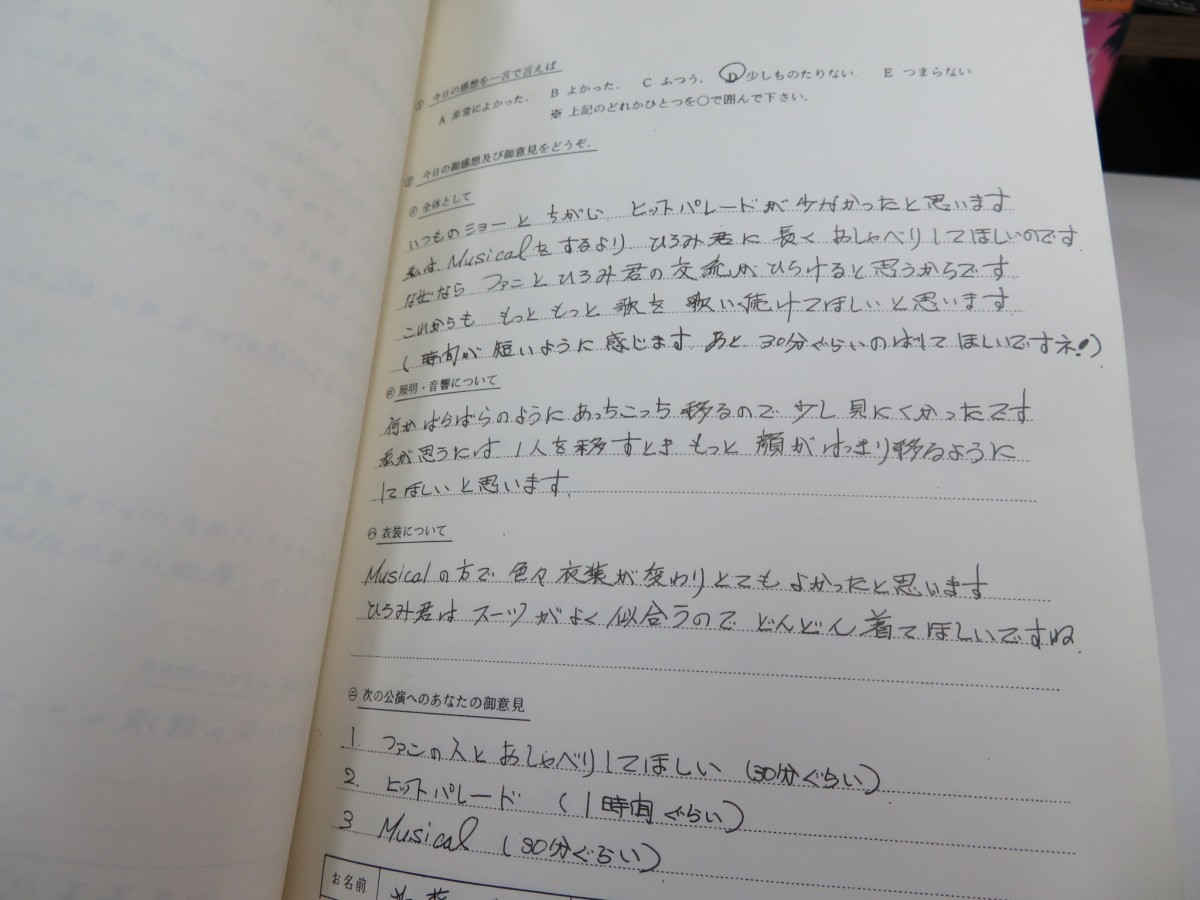 ① 今日の感想を一言で言えば
A 非常によかった. B よかった. C ふつう. D 少しものたりない E つまらない
※ 上記のどれかひとつを○で囲んで下さい.
② 今日の御感想及び御意見をどうぞ.
㋑ 全体として
いつものショーと ちがい ヒットパレードが少なかったと思います
私は Musicalをするより ひろみ君に 長く おしゃべりしてほしいのです
なぜなら ファンと ひろみ君の交流が ひらけると思うからです
これからも もっと もっと 歌を 歌い続けてほしいと思います
(時間が 短いように 感じます あと 30分ぐらいのばしてほしいですネ!)
㋺ 照明・音響について
何か ばらばらのように あっちこっち 移るので 少し 見にくかったです
私が思うには 1人を移すとき もっと 顔が はっきり移るように
してほしいと思います.
㋩ 衣装について
Musicalの方で 色々 衣装が 変わりとても よかったと思います
ひろみ君は スーツがよく似合うので どんどん 着てほしいですね.
㊁ 次の公演へのあなたの御意見
1. ファンの人と おしゃべりしてほしい (30分ぐらい)
2. ヒットパレード (1時間ぐらい)
3 Musical (30分ぐらい)
お名前